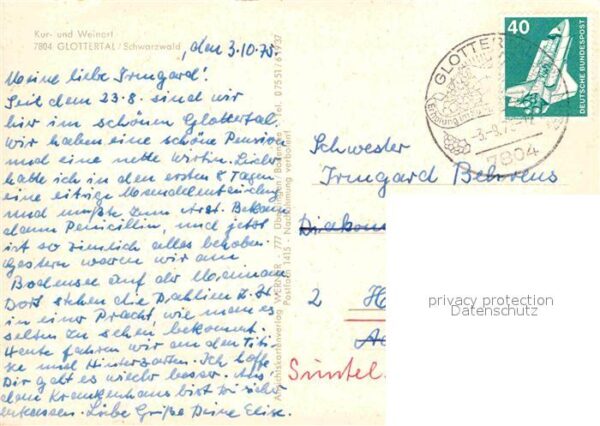 Kur- und Weinort
7804 GLOTTERTAL/Schwarzwald
, den 3.10.75
Meine liebe Irmgard!
Seit dem 23.8. sind wir
hier im schönen Glottertal.
Wir haben eine schöne Pension
und eine nette Wirtin. Leider
hatte ich in den ersten 8 Tagen
eine eitrige
und mußte zum Arzt. Bekam
dann Penicillin, und jetzt
ist so ziemlich alles behoben.
Gestern waren wir am
Bodensee auf der Mainau
Dort stehen die Dahlien z. Zt
in einer Pracht, wie man es
selten zu sehen bekommt.
Heute fahren wir an den Titi-
see und Hinterzarten. Ich hoffe
Dir geht es wieder besser. Aus
dem Krankenhaus bist Du sicher
entlassen. Liebe Grüße Deine Elise.
Ansichtskartenverlag WERNER · 777 Überlingen/Bodensee · Tel. 07551/
Postfach 1415 - Nachahmung verboten!
GLOTTERT
Erholung im
7804
40
DEUTSCHE BUNDESPOST
Schwester
Irmgard Behrens
Diakon
2 H
Süntel
privacy protection
Datenschutz